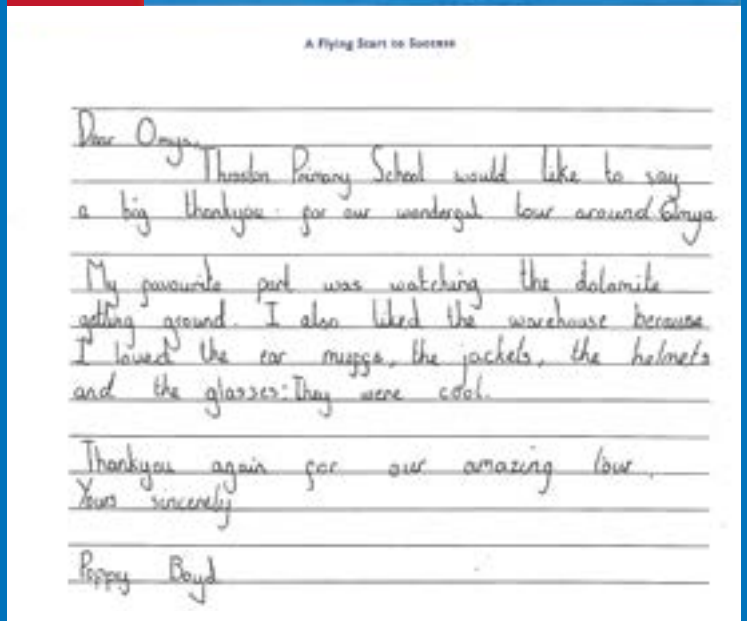 A Flying Start to Success
Dear Omya,
Throston Primary School would like to say
a big thankyou for our wonderful tour around Omya
My favourite part was watching the dolamite
getting ground. I also liked the warehouse because
I loved the ear muffs, the jackets, the helmets
and the glasses: They were cool.
Thankyou again for our amazing tour.
Yours sincerely
Poppy Boyd